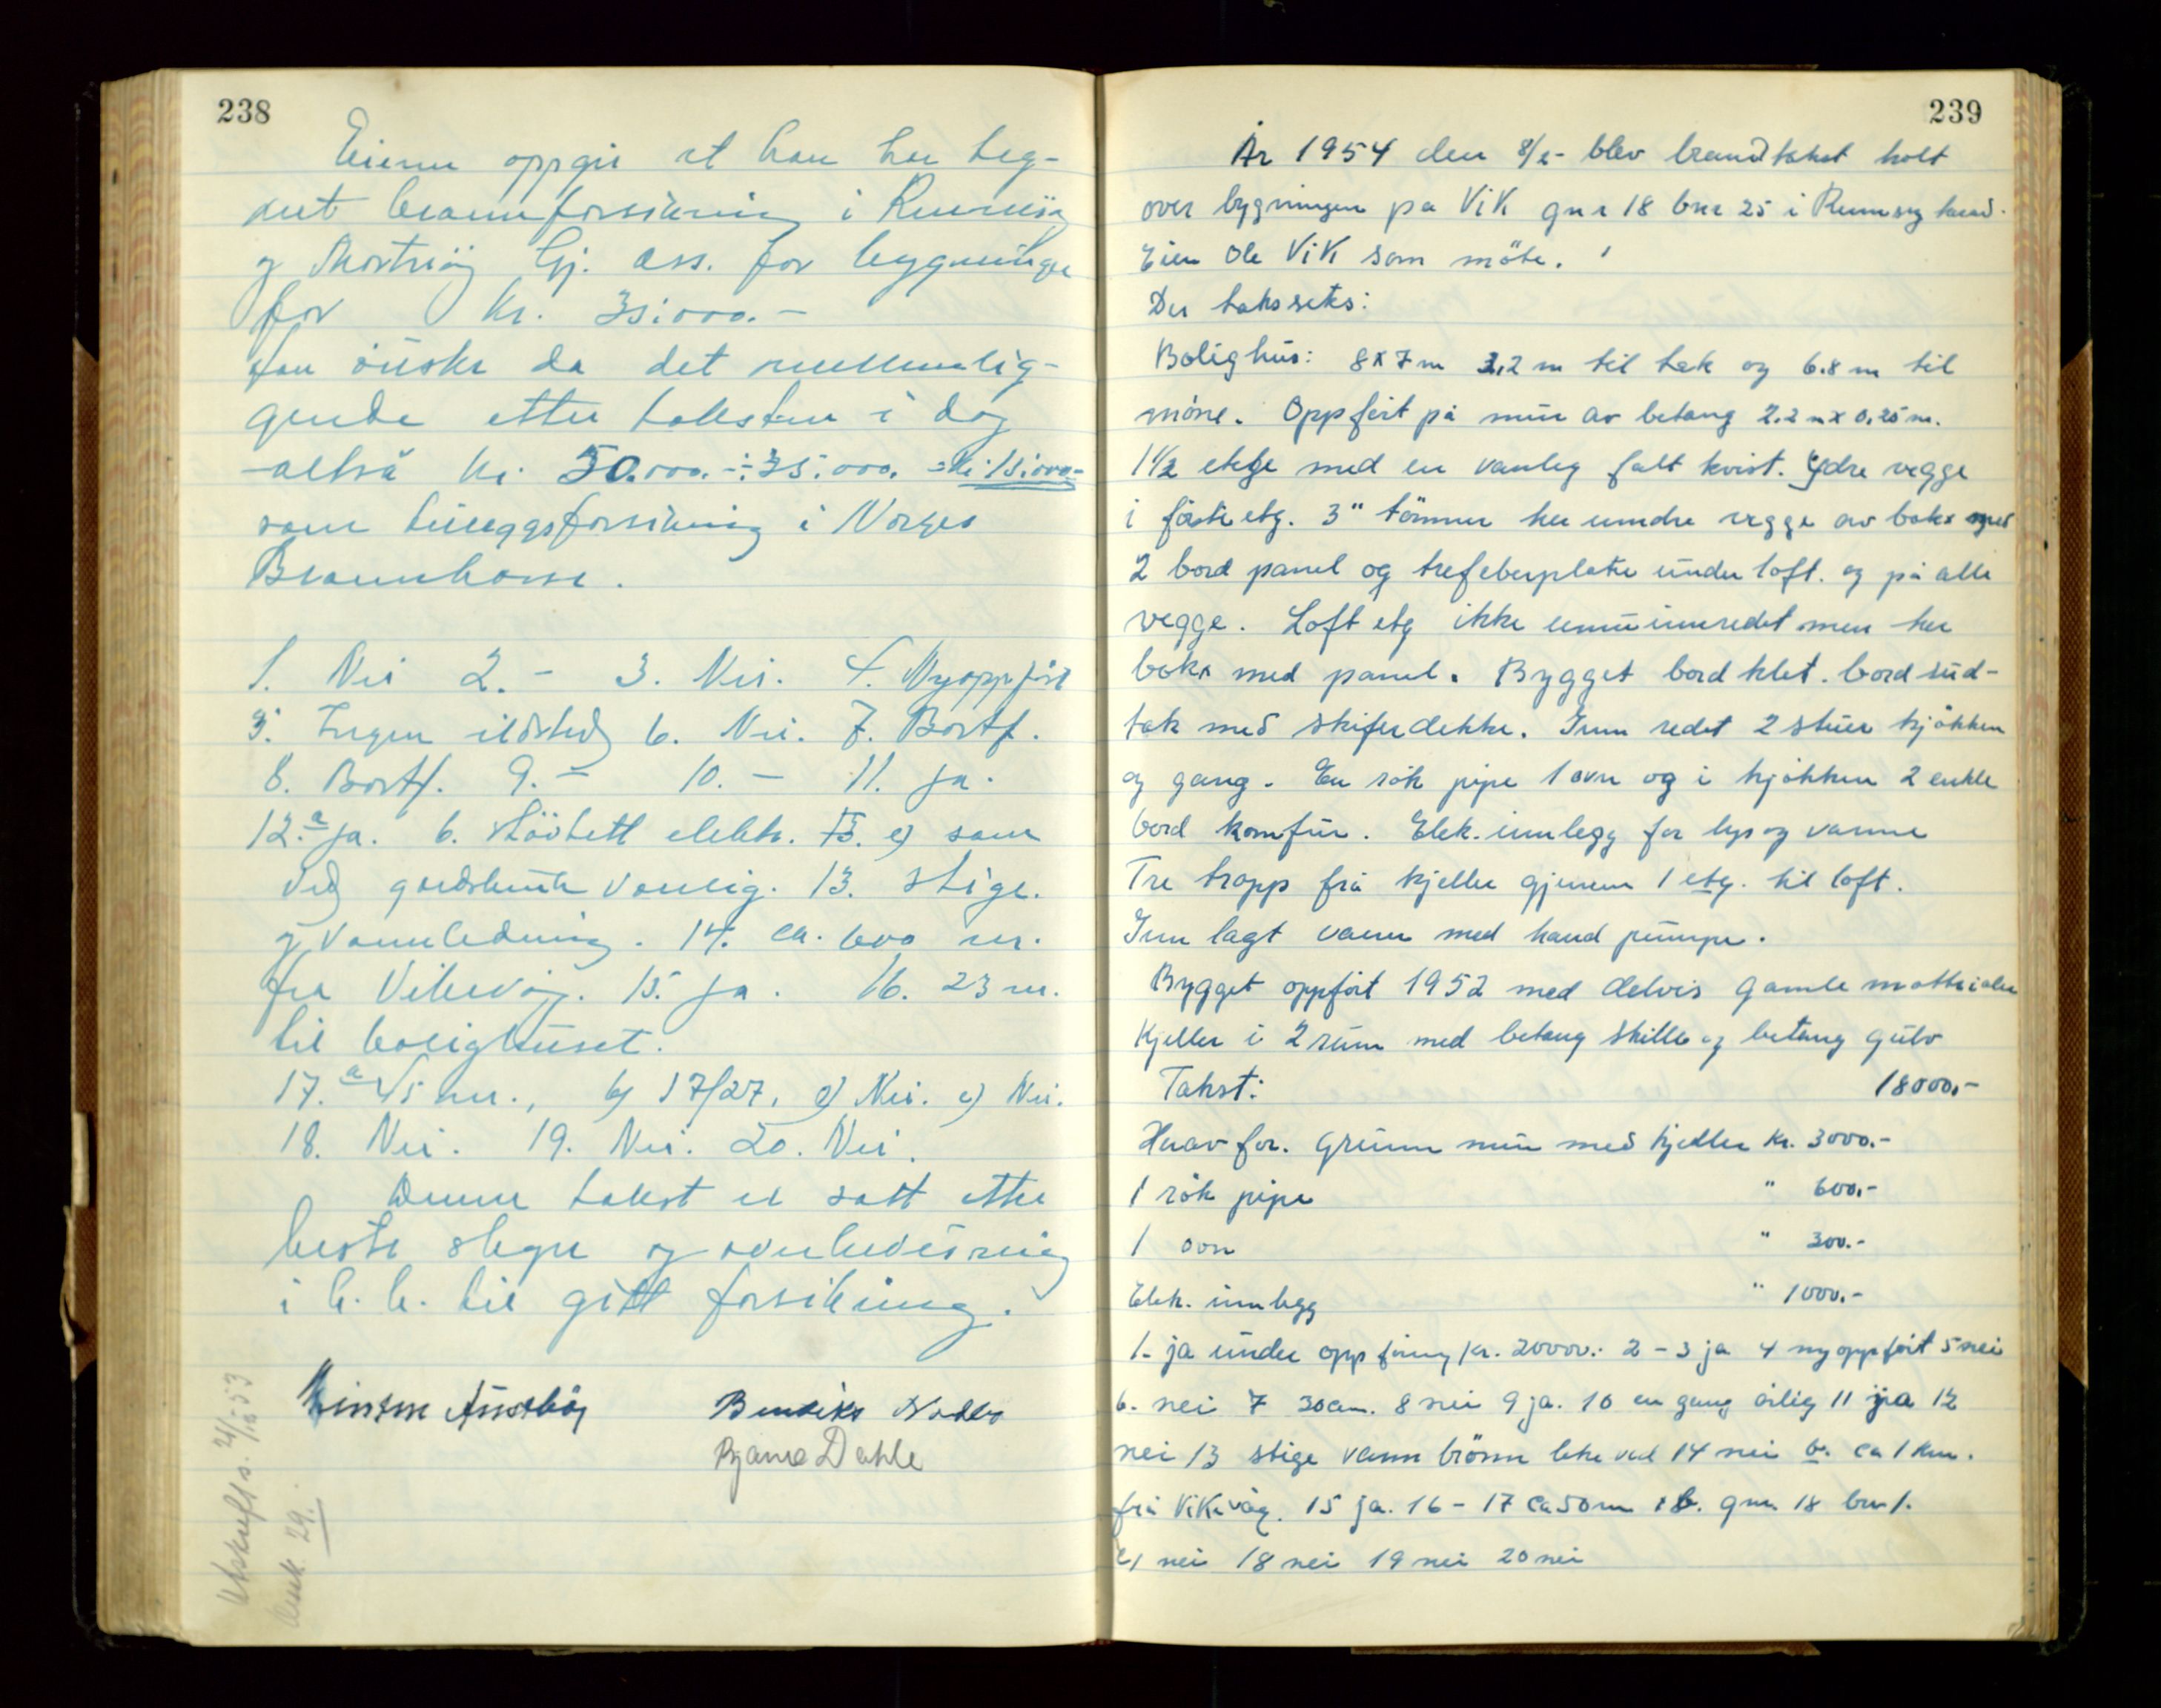 238
Eieren oppgir at han har teg-
net brannforsikring i Rennesöy
og Mosteröy Gj. ass. for bygningen
for kr. 35.000.-
Han önsker da det mellomlig-
gende etter taksten i dag
-altså kr. 50.000.- ÷ 35.000. = kr. 15.000.-
som tilleggsforsikring i Norges
Brannkasse.
1. Nei 2. - 3. Nei. 4. Nyoppfört
5. Ingen ildsted 6. Nei. 7. Bortf.
8. Bortf. 9. - 10. - 11. ja.
12. a ja. b. Stövtett elektr. c) som
ved gardsbruk vanlig. 13. Stige.
og Vannledning. 14. ca. 600 m.
fra Vikevåg. 15. ja. 16. 23 m.
til bolighuset.
17. a 45 m., b) 17/27. c) Nei. Nei.
18. Nei. 19. Nei. 20. Nei.
Denne takst er satt etter
beste skjønn og overbevisning
i h. h. til gitt forsikring.
Bendiks
Bjarne Dahle
Utskrift s. 24/10-53
29.
239
År 1954 den 8/2- blev brandtakst holt
over bygningen på Vik gnr 18 bnr 25 i Rennesöy herad.
Eier Ole Vik som möte.
Der takseres:
Bolighus: 8x7m 3,2 m til tak og 6.8 m til
möne. Oppfört på mur av betong 2.2 m x 0,25 m.
1 1/2 etge med en vanleg falt kvist. Ydre vegge
i förste etg. 3" tömmer her inndre vegge av boks med
2 bord panel og trefeberplater under loft. og på alle
vegge. Loft etg ikke ennu innredet men her
boks med panel. Bygget bord klet. bord sud-
tak med skiferdekke. Inn redet 2 stuer kjökken
og gang. En rök pipe 1 ovn og i kjökken 2 enkle
bord komfur. Elek. innlegg for lys og varme
Tre trapp frå kjeller gjenem 1 etg. til loft.
Inn lagt vann med hand pumpe.
Bygget oppfört 1952 med delvis gamle mattrialer
Kjeller i 2 rum med betong skille og betong gulv
Takst: 18000,-
Herav for. Grunn mur med kjeller kr. 3000.-
1 rök pipe " 600,-
1 ovn " 300.-
Elek. innlegg " 1000.-
1- ja under oppföring kr. 20000.- 2 - 3 ja 4 nyoppfört 5 nei
6. nei 7 30 cm. 8 nei 9 ja. 10 en gang årlig 11 ja 12
nei 13 stige vann brönn like ved 14 nei b. ca 1 km.
frå Vikevåg. 15 ja. 16 - 17 ca 50 m b. gnr. 18 bnr 1.
c) nei 18 nei 19 nei 20 nei